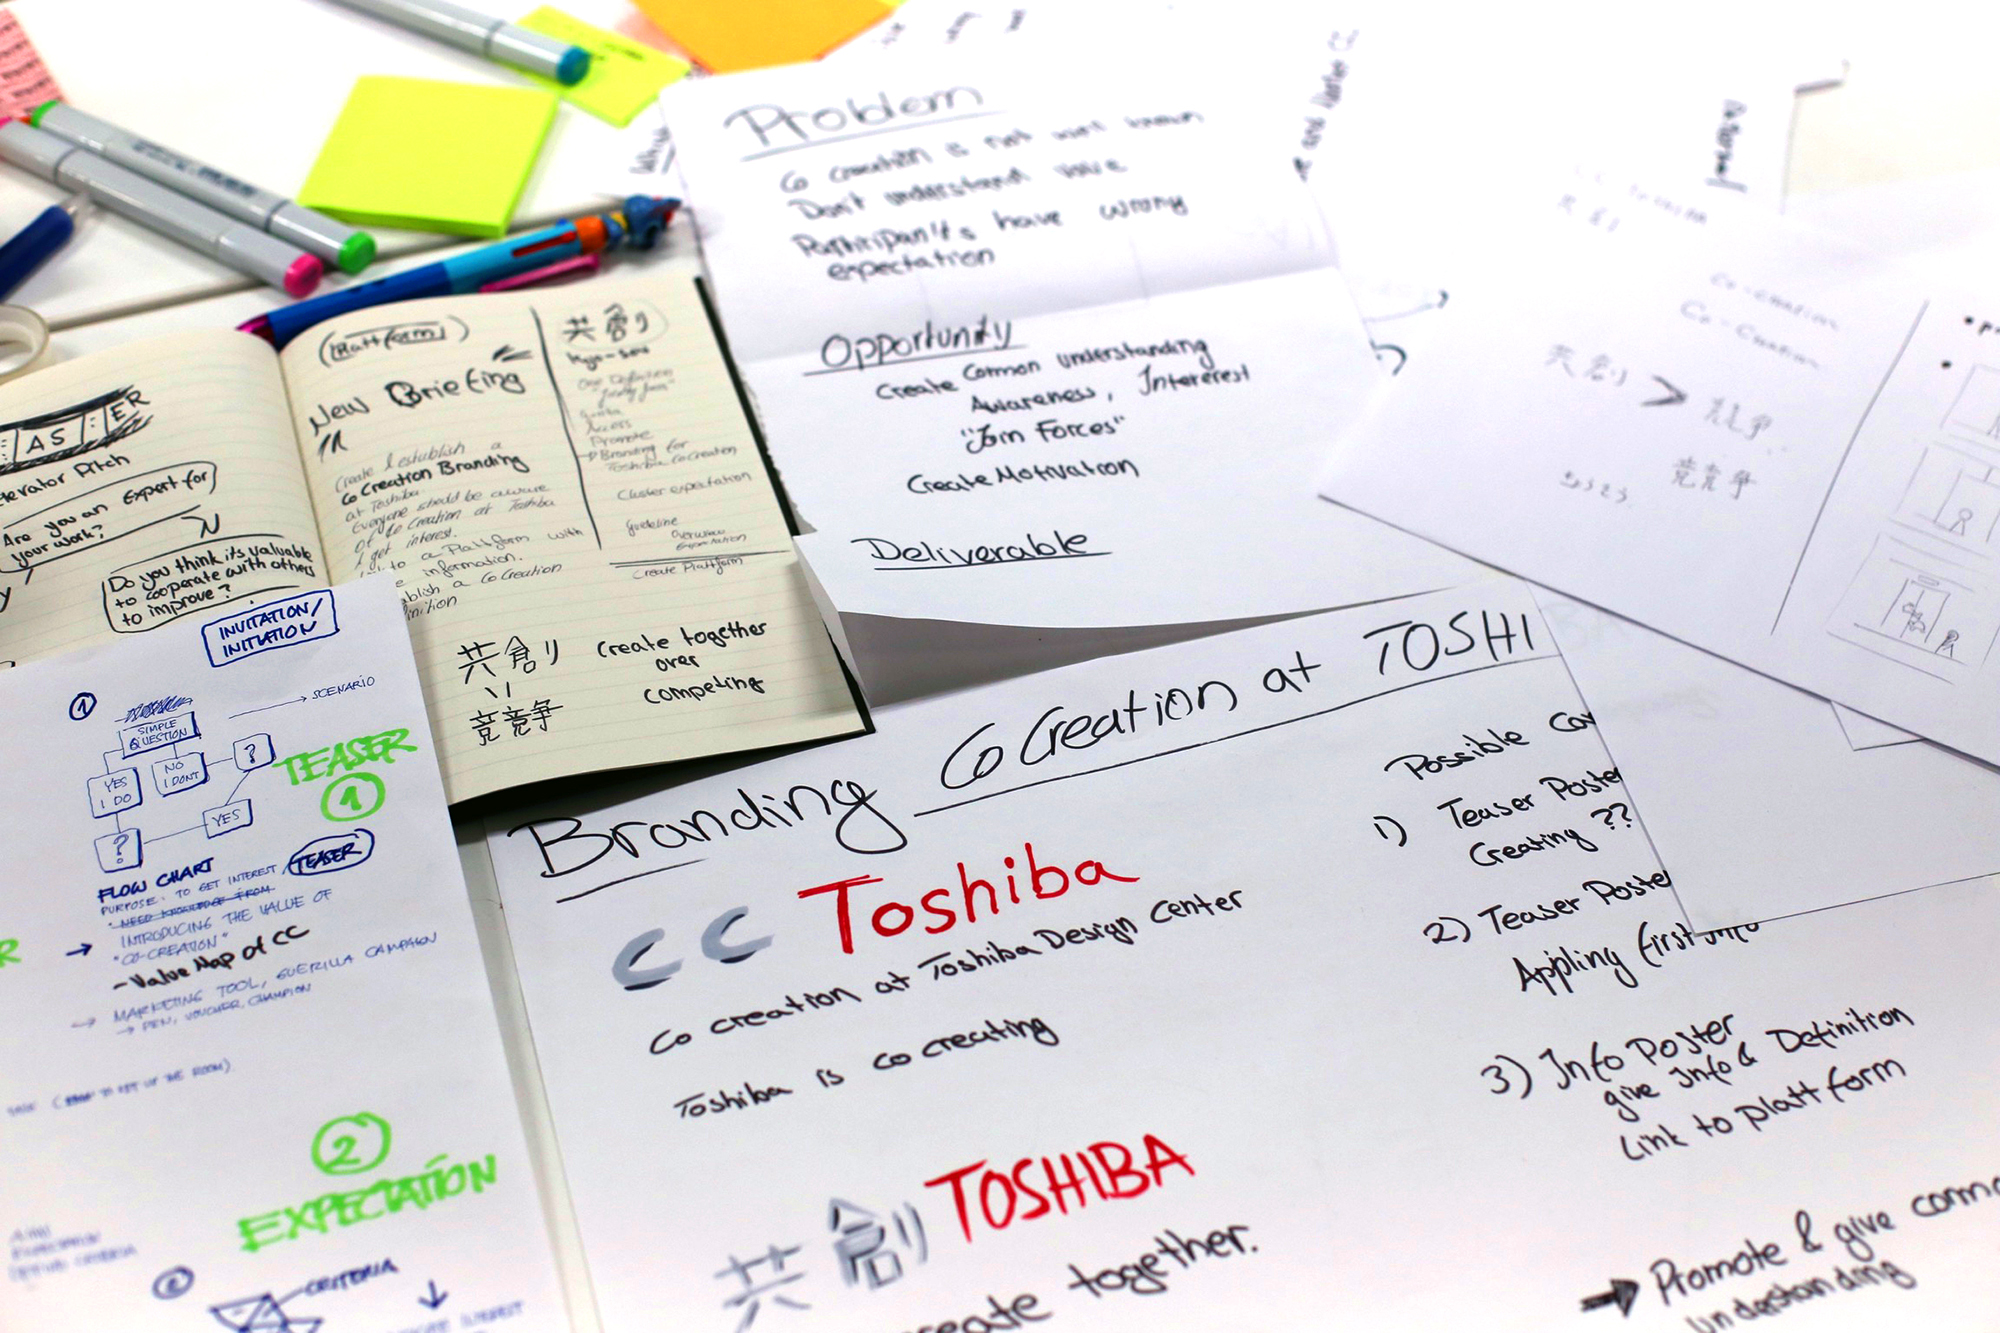 Problem
Co creation is not well known
Don't understand value
Participan't's have wrong
expectation
Opportunity
Create Common understanding
Awareness, Intererest
"Join Forces"
Create Motivation
Deliverable
(Plattform)
New Briefing
Create & establish a
Co Creation Branding
at Toshiba.
Everyone should be aware
of Co Creation at Toshiba
& get interest.
to a Plattform with
information.
a Co Creation
共創り
kyo-sou
One Definition
Access
Promote
Branding for
Toshiba CoCreation
Cluster expectation
Guideline
Overview
Expectation
Create Plattform
共創り
競争
Create together
over
competing
AS ER
erator Pitch
Are you an Expert for
your work?
Do you think its valuable
to cooperate with others
to improve?
INVITATION/
INITIATION
1
SCENARIO
SIMPLE
QUESTION
YES
I DO
NO
I DONT
?
YES
?
TEASER
1
FLOW CHART
PURPOSE: TO GET INTEREST/ TEASER
NEED KNOWLEDGE FROM
INTRODUCING THE VALUE OF
"CO-CREATION"
- Value Map of CC
→ MARKETING TOOL, GUERILLA CAMPAIGN
→ PEN, VOUCHER, CHAMPION
2
EXPECTATION
2
CRITERIA
Branding Co Creation at TOSHI
CC Toshiba
Co creation at Toshiba Design Center
Toshiba is co creating
共創り TOSHIBA
create together.
Possible
1) Teaser Poster
Creating ??
2) Teaser Poste
Appling first info
3) Info Poster
give Info & Definition
Link to plattform
→ Promote & give
understanding
Co-creation
Co-Creation
共創り >